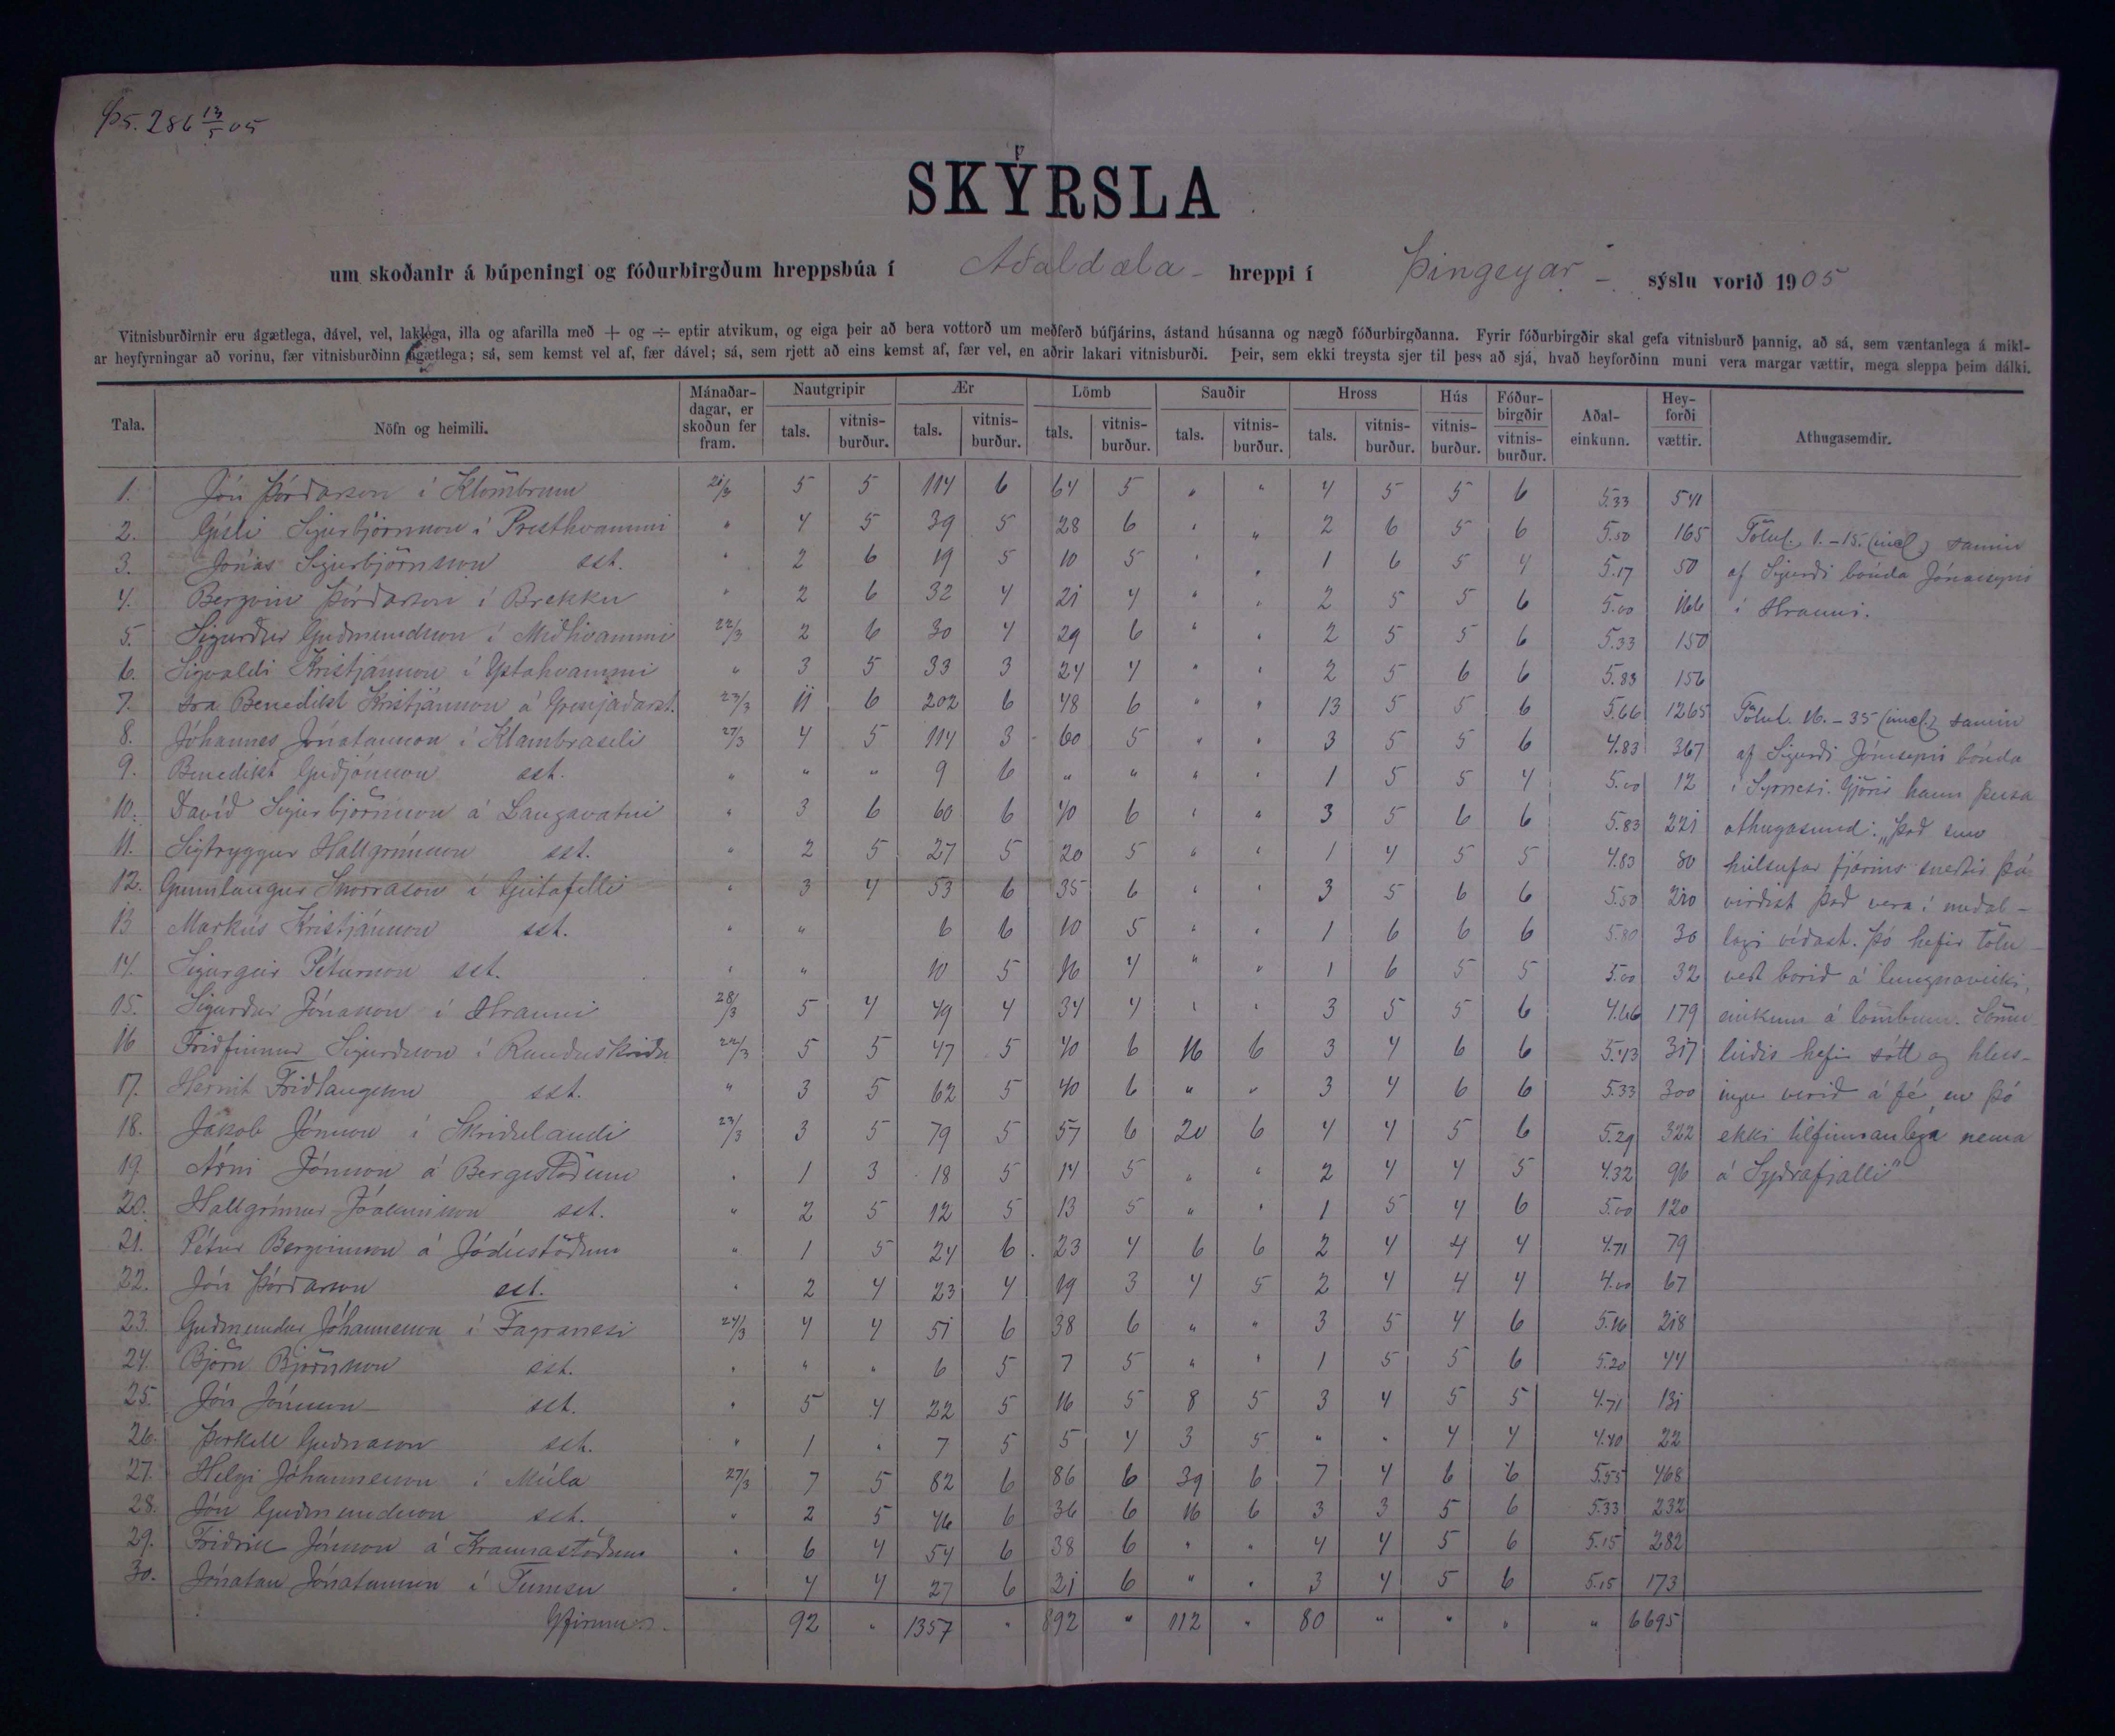 Þ5. 286 13/5 05
SKÝRSLA
um skoðanir á búpeningi og fóðurbirgðum hreppsbúa í Aðaldæla- hreppi í Þingeyar- sýslu vorið 1905
Vitnisburðirnir eru ágætlega, dável, vel, laklega, illa og afarilla með + og ÷ eptir atvikum, og eiga þeir að bera vottorð um meðferð búfjárins, ástand húsanna og nægð fóðurbirgðanna. Fyrir fóðurbirgðir skal gefa vitnisburð þannig, að sá, sem væntanlega á mikl-
ar heyfyrningar að vorinu, fær vitnisburðinn ágætlega; sá, sem kemst vel af, fær dável; sá, sem rjett að eins kemst af, fær vel, en aðrir lakari vitnisburði. Þeir, sem ekki treysta sjer til þess að sjá, hvað heyforðinn muni vera margar vættir, mega sleppa þeim dálki.
Tala. Nöfn og heimili. Mánaðar-dagar, er skoðun fer fram. Nautgripir Ær Lömb Sauðir Hross Hús Fóður-birgðir Aðal-einkunn. Hey-forði Athugasemdir.
tals. vitnis-burður. tals. vitnis-burður. tals. vitnis-burður. tals. vitnis-burður. tals. vitnis-burður. vitnis-burður. vitnis-burður. vættir.
1. Jón Þórðarson í Klömbrum 21/3 5 5 114 6 64 5 " " 4 5 5 6 5.33 541
2. Gísli Sigurbjörnsson í Presthvammi " 4 5 39 5 28 6 " " 2 6 5 6 5.50 165 Tölul. 1.-15. (incl.) samin
3. Jónas Sigurbjörnsson sst. " 2 6 19 5 10 5 " " 1 6 5 4 5.17 50 af Sigurði bónda Jónassyni
4. Bergvin Þórðarson í Brekku " 2 6 32 4 21 4 " " 2 5 5 6 5.00 166 í Hrauni.
5. Sigurður Guðmundsson í Miðhvammi 22/3 2 6 30 4 29 6 " " 2 5 5 6 5.33 150
6. Sigvaldi Kristjánsson í Ystahvammi " 3 5 33 3 24 4 " " 2 5 6 6 5.83 156
7. sra Benedikt Kristjánsson á Grenjaðarst. 23/3 11 6 202 6 48 6 " " 13 5 5 6 5.66 1265 Tölul. 16.-35 (incl.) samin
8. Jóhannes Jónatansson í Klambraseli 27/3 4 5 114 3 60 5 " " 3 5 5 6 4.83 367 af Sigurði Jónssyni bónda
9. Benedikt Guðjónsson sst. " " " 9 6 " " " " 1 5 5 4 5.00 12 í Syrnesi. Gjörir hann þessa
10. Davíð Sigurbjörnsson á Langavatni " 3 6 60 6 40 6 " " 3 5 6 6 5.83 221 athugasemd: "Það sem
11. Sigtryggur Hallgrímsson sst. " 2 5 27 5 20 5 " " 1 4 5 5 4.83 80 heilsufar fjárins snertir þá
12. Gunnlaugur Snorrason í Geitafelli " 3 4 53 6 35 6 " " 3 5 6 6 5.50 210 virðist það vera í meðal-
13 Markús Kristjánsson sst. " " 6 6 10 5 " " 1 6 6 6 5.80 30 lagi víðast. Þó hefir tölu-
14. Sigurgeir Pétursson sst. " " 10 5 16 4 " " 1 6 5 5 5.00 32 vert borið á lungnaveiki,
15. Sigurður Jónasson í Hrauni 28/3 5 4 49 4 34 4 " " 3 5 5 6 4.66 179 einkum á lömbum. Sömu
16 Friðfinnur Sigurðsson í Rauðuskriðu 22/3 5 5 47 5 40 6 16 6 3 4 6 6 5.43 317 leiðis hefir sótt og hless-
17. Hernit Friðlaugsson sst. " 3 5 62 5 40 6 " " 3 4 6 6 5.33 300 ingur verið á fé, en þó
18. Jakob Jónsson í Skriðulandi 23/3 3 5 79 5 57 6 20 6 4 4 5 6 5.29 322 ekki tilfinnanlega nema
19. Árni Jónsson á Bergsstöðum " 1 3 18 5 14 5 " " 2 4 4 5 4.32 96 á Syðrafjalli"
20. Hallgrímur Jóakimsson sst. " 2 5 12 5 13 5 " " 1 5 4 6 5.00 120
21. Pétur Bergvinsson á Jódísstöðum " 1 5 24 6 23 4 6 6 2 4 4 4 4.71 79
22. Jón Þórðarson sst. " 2 4 23 4 19 3 4 5 2 4 4 4 4.00 67
23. Guðmundur Jóhannesson í Fagranesi 24/3 4 4 51 6 38 6 " " 3 5 4 6 5.16 218
24. Björn Björnsson sst. " " " 6 5 7 5 " " 1 5 5 6 5.20 44
25. Jón Jónsson sst. " 5 4 22 5 16 5 8 5 3 4 5 5 4.71 131
26. Þorkell Guðnason sst. " 1 " 7 5 5 4 3 5 " " 4 4 4.40 22
27. Helgi Jóhannesson í Múla 27/3 7 5 82 6 86 6 39 6 7 4 6 6 5.55 468
28. Jón Guðmundsson sst. " 2 5 46 6 36 6 16 6 3 3 5 6 5.33 232
29. Friðrik Jónsson á Kraunastöðum " 6 4 54 6 38 6 " " 4 4 5 6 5.15 282
30. Jónatan Jónatansson í Tumsu " 4 4 27 6 21 6 " " 3 4 5 6 5.15 173
92 " 1357 " 892 " 112 " 80 " " " " 6695